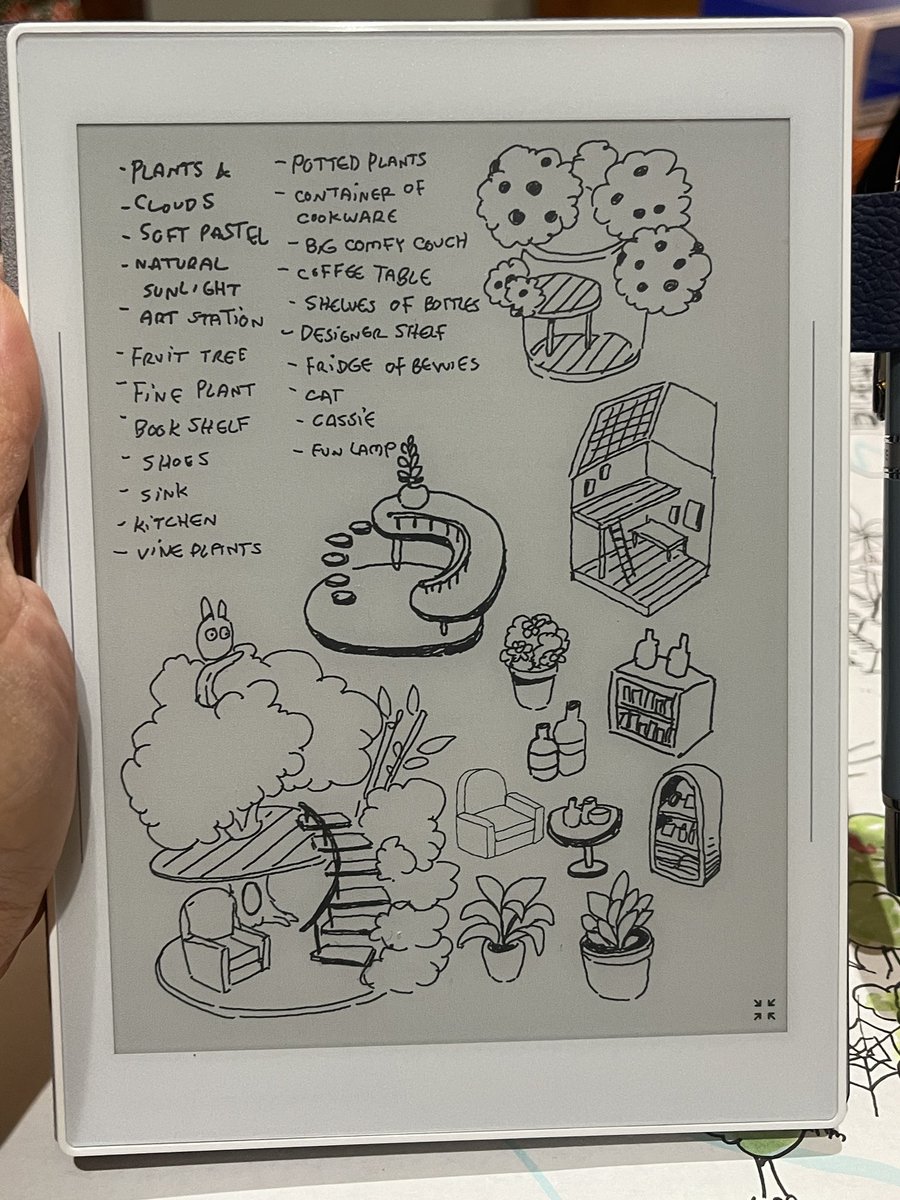 - PLANTS &
- CLOUDS
- SOFT PASTEL
- NATURAL
SUNLIGHT
- ART STATION
- FRUIT TREE
- FINE PLANT
- BOOK SHELF
- SHOES
- SINK
- KITCHEN
- VINE PLANTS
- POTTED PLANTS
- CONTAINER OF
COOKWARE
- BIG COMFY COUCH
- COFFEE TABLE
- SHELVES OF BOTTLES
- DESIGNER SHELF
- FRIDGE OF BEVVIES
- CAT
- CASSIE
- FUN LAMP